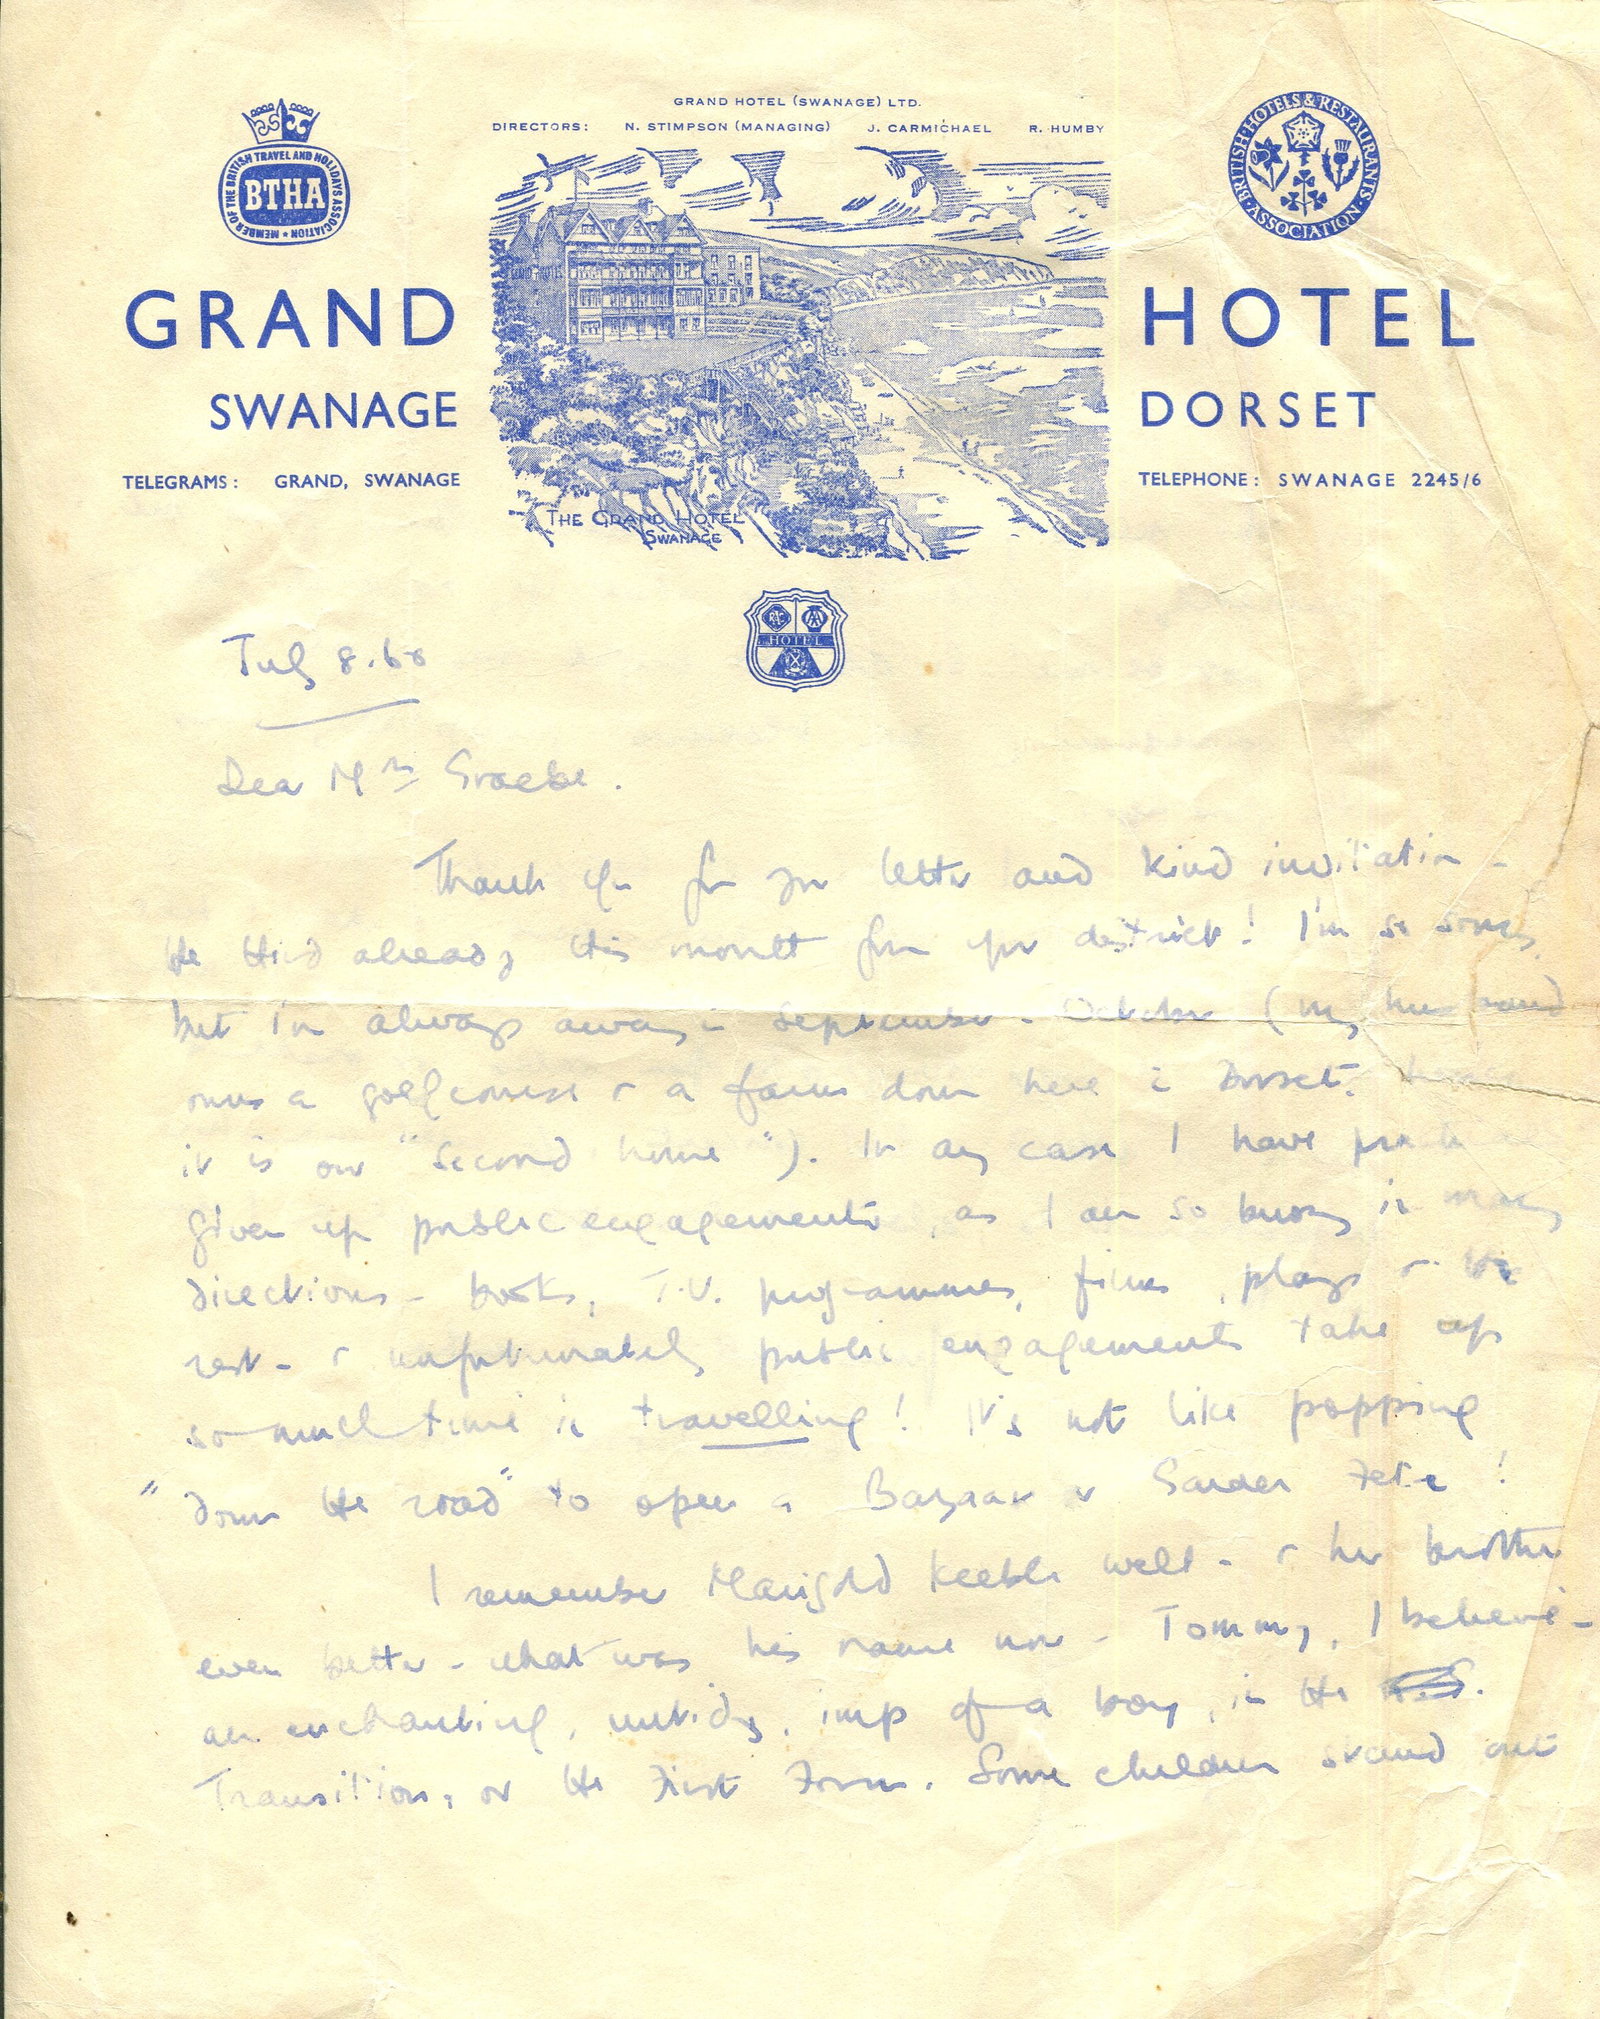 GRAND HOTEL (SWANAGE) LTD.
DIRECTORS: N. STIMPSON (MANAGING) J. CARMICHAEL R. HUMBY
MEMBER OF THE BRITISH TRAVEL AND HOLIDAYS ASSOCIATION
BTHA
BRITISH HOTELS & RESTAURANTS ASSOCIATION
GRAND HOTEL
SWANAGE DORSET
TELEGRAMS: GRAND, SWANAGE TELEPHONE: SWANAGE 2245/6
THE GRAND HOTEL
SWANAGE
RAC AA
HOTEL
July 8. 60
Dear Mrs
Thank you for your letter and kind invitation -
the third already this month from your district! I'm so sorry,
but I'm always away in September - October (my husband
owns a golf course & a farm down here in Dorset,
it is our "second home"). In any case I have
given up public engagements, as I am so busy in many
directions - books, T.V. programmes, films, plays & the
rest - & unfortunately public engagements take up
so much time in travelling! It's not like popping
"down the road" to open a Bazaar or Garden Fete!
I remember Marigold Keeble well - & her brother
even better - what was his name now - Tommy, I believe -
an enchanting, untidy, imp of a boy, in the
Transition, or the First Form. Some children stand out